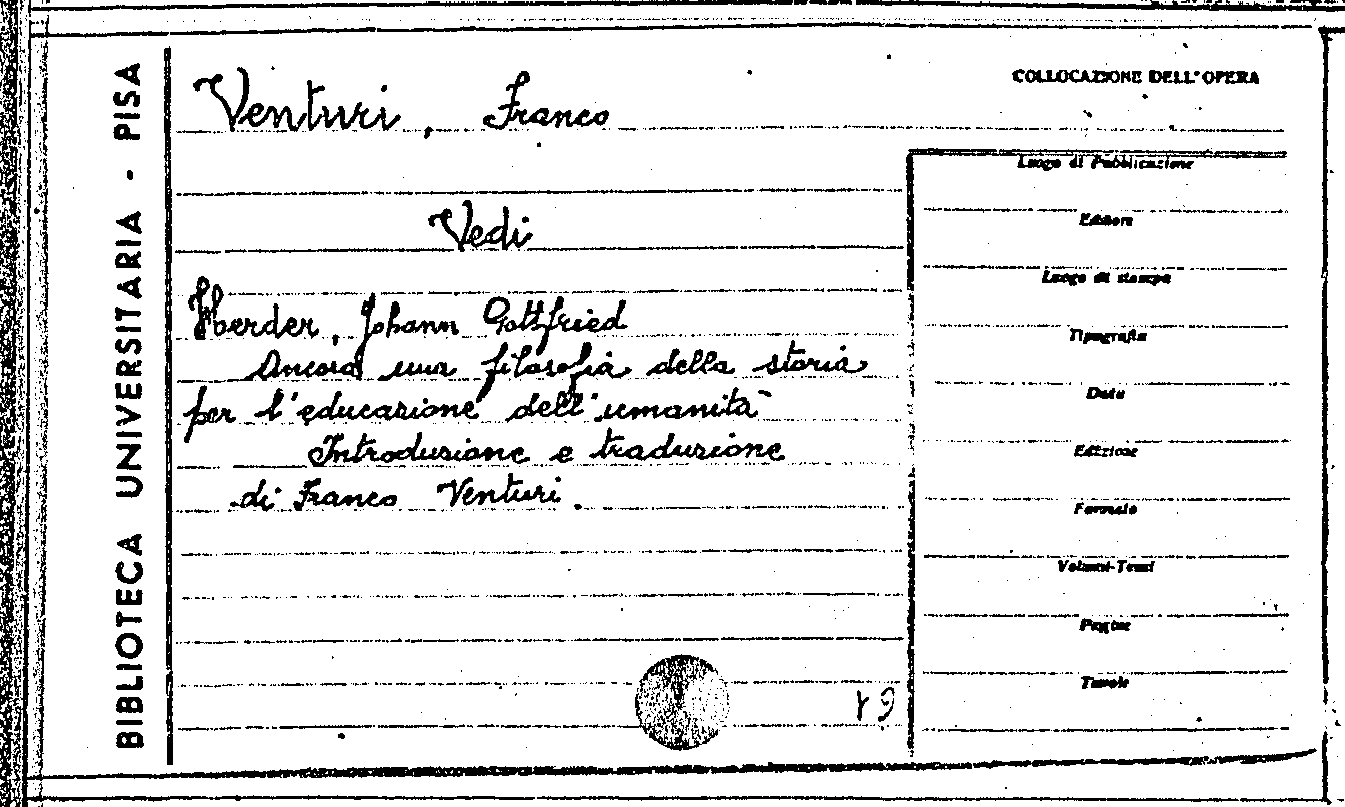 BIBLIOTECA UNIVERSITARIA - PISA
Venturi, Franco
COLLOCAZIONE DELL'OPERA
Vedi
Herder, Johann Gottfried
Ancora una filosofia della storia
per l'educazione dell'umanità
Introduzione e traduzione
di Franco Venturi.
Luogo di Pubblicazione
Editore
Luogo di stampa
Tipografia
Data
Edizione
Formato
Volumi-Tomi
Pagine
Tavole